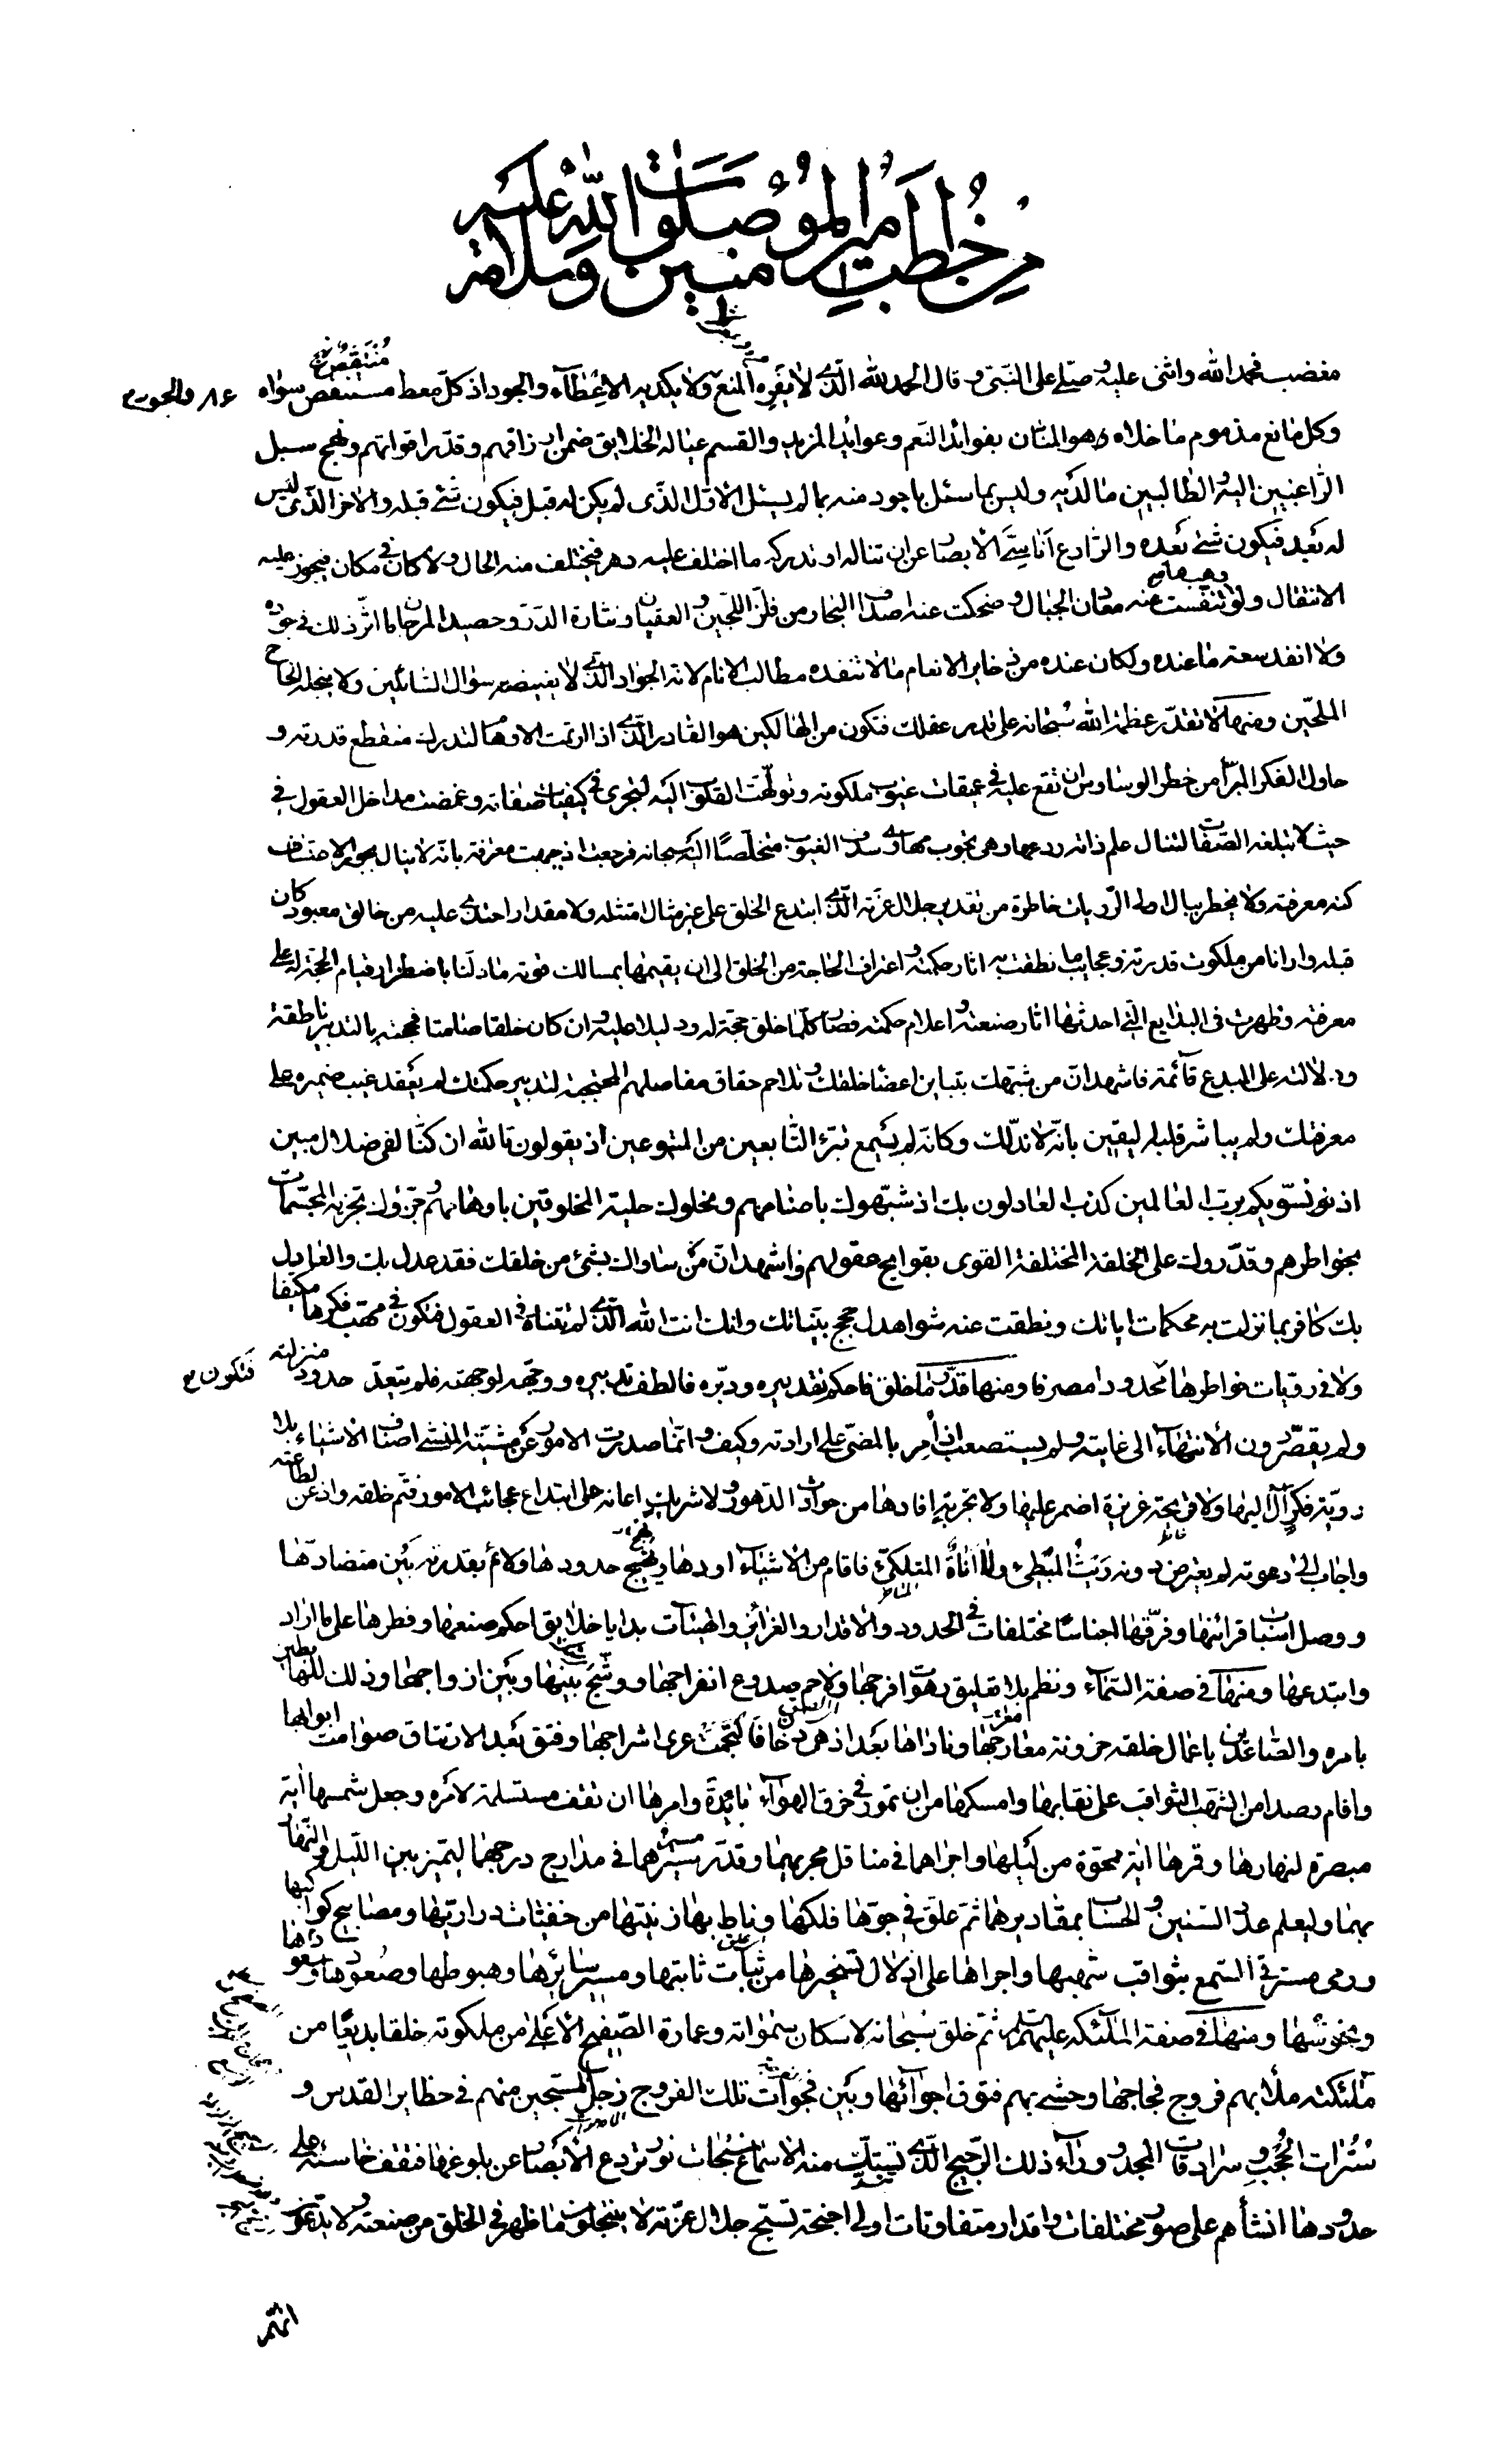 من خطب امير المؤمنين صلوات الله عليه وسلامه
مغضب فحمد الله واثنى عليه وصلى على النبى وقال الحمد لله الّذى لا يفره المنع ولا يكديه الاعطآء والجود اذ كلّ معط منتقص سواه
وكل مانع مذموم ما خلاه وهو المنان بفوائد النعم وعوائد المزيد والقسم عياله الخلايق ضمن ارزاقهم وقدّر اقواتهم ونهج سبيل
الراغبين اليه والطالبين ما لديه وليس بما سئل باجود منه بما لم يسئل الاوّل الذى لم يكن له قبل فيكون شئ قبله والاخر الّذى ليس
له بعد فيكون شئ بعده والرّادع اناسىّ الابصار عن ان تناله او تدركه ما اختلف عليه دهر فيختلف منه الحال ولا كان فى مكان فيجوز عليه
الانتقال ولو وهب ما تنفست عنه معادن الجبال وضحكت عنه اصداف البحار من فلزّ اللّجين والعقيان ونثارة الدّرّ وحصيد المرجان ما اثّر ذلك فى جوده
ولا انفد سعة ما عنده ولكان عنده من ذخاير الانعام ما لا تنفده مطالب الانام لانه الجواد الّذى لا يغيضه سؤال السّائلين ولا يبخله الحاح
الملحّين ومنها لا تقدّر عظمة الله سبحانه على قدر عقلك فتكون من الهالكين هو القادر الّذى اذا ارتمت الاوهام لتدرك منقطع قدرته و
حاول الفكر المبرّأ من خطر الوساوس ان تقع عليه فى عميقات غيوب ملكوته وتولّهت القلوب اليه لتجرى فى كيفيات صفاته وغمضت مداخل العقول فى
حيث لا تبلغه الصّفات لتنال علم ذاته ردعها وهى تجوب مهاوى سدف الغيوب متخلّصة اليه سبحانه فرجعت اذ جبهت معرفة بانّه لا ينال بجور الاعتساف
كنه معرفته ولا يخطر ببال اولى الرّويات خاطرة من تقدير جلال عزّته الّذى ابتدع الخلق على غير مثال امتثله ولا مقدار احتذى عليه من خالق معبود كان
قبله وارانا من ملكوت قدرته وعجايب ما نطقت به اثار حكمته واعتراف الحاجة من الخلق الى ان يقيمها بمساك قوته ما دلّنا باضطرار قيام الحجة له على
معرفته وظهرت فى البدايع التى احدثها اثار صنعته واعلام حكمته فصار كلّما خلق حجة له ودليلا عليه وان كان خلقا صامتا فحجته بالتدبير ناطقة
ودلالته على المبدع قآئمة فاشهد ان من شبّهك بتباين اعضآء خلقك وتلاحم حقاق مفاصلهم المحتجبة لتدبير حكمتك لم يعقد غيب ضميره على
معرفتك ولم يباشر قلبه اليقين بانّه لا ندّ لك وكانه لم يسمع تبرّء التّابعين من المتبوعين اذ يقولون تالله ان كنّا لفى ضلال مبين
اذ نسوّيكم بربّ العالمين كذب العادلون بك اذ شبّهوك باصنامهم ونحلوك حلية المخلوقين باوهامهم وجزّؤك تجزية المجسّمات
بخواطرهم وقدّروك على الخلقة المختلفة القوى بقرايح عقولهم واشهد انّ من ساواك بشئ من خلقك فقد عدل بك والعادل
بك كافر بما تنزلت به محكمات اياتك ونطقت عنه شواهد حجج بيّناتك وانك انت الله الّذى لم تتناه فى العقول فتكون فى مهبّ فكرها مكيفا
ولا فى رويّات خواطرها محدودا مصرفا ومنها قدّر ما خلق فاحكم تقديره ودبّره فالطف تدبيره ووجّهه لوجهته فلم يتعدّ حدود منزلته
فتكون
ولم يقصّر دون الانتهآء الى غايته ولم يستصعب اذ أمر بالمضىّ على ارادته وكيف وانّما صدرت الامور عن مشيّته المنشئ اصناف الاشيآء بلا
رويّة فكر آل اليها ولا قريحة غريزة اضمر عليها ولا تجربة افادها من حوادث الدّهور ولا شريك اعانه على ابتداع عجائب الامور فتم خلقه واذعن لطاعته
واجاب الى دعوته لم يعترض دونه ريث المبطئ ولا اناة المتلكّئ فاقام من الاشيآء اودها ونهج حدودها ولائم بقدرته بين متضادّها
ووصل اسباب قرائنها وفرّقها اجناسا مختلفات فى الحدود والاقدار والغرائز والهيئات بدايا خلايق احكم صنعها وفطرها على ما اراد
وابتدعها ومنها فى صفة السّمآء ونظم بلا تعليق رهوات فرجها ولاحم صدوع انفراجها ووشّج بينها وبين ازواجها وذلّل للهابطين
بامره والصّاعدين باعمال خلقه حزونة معارجها وناداها بعد اذ هى دخان فالتحمت عرى اشراجها وفتق بعد الارتتاق صوامت ابوابها
واقام رصدا من الشّهب الثواقب على نقابها وامسكها من ان تمور فى خرق الهوآء بايده وامرها ان تقف مستسلمة لامره وجعل شمسها اية
مبصرة لنهارها وقمرها اية ممحوّة من ليلها واجراهما فى مناقل مجريهما وقدّر مسيرهما فى مدارج درجهما ليتميز بين اللّيل والنّهار
بهما وليعلم عدد السّنين والحساب بمقاديرهما ثمّ علّق فى جوّها فلكها وناط بها زينتها من خفيّات دراريّها ومصابيح كواكبها
ورمى مسترقى السّمع بثواقب شهبها واجراها على اذلال تسخيرها من ثبات ثابتها ومسير سائرها وهبوطها وصعودها وسعودها
ونحوسها ومنها فى صفة الملئكة عليهم السلم ثم خلق سبحانه لاسكان سمواته وعمارة الصّفيح الاعلى من ملكوته خلقا بديعا من
ملئكته ملأ بهم فروج فجاجها وحشى بهم فتوق اجوآئها وبين فجوات تلك الفروج زجل المسبّحين منهم فى حظاير القدس و
سترات الحجب وسرادقات المجد وورآء ذلك الرّجيج الّذى تستكّ منه الاسماع سبحات نور تردع الابصار عن بلوغها فتقف خاسئة على
حدودها انشأهم على صور مختلفات واقدار متفاوتات اولى اجنحة تسبّح جلال عزّته لا ينتحلون ما ظهر فى الخلق من صنعته ولا يدّعون
انّهم